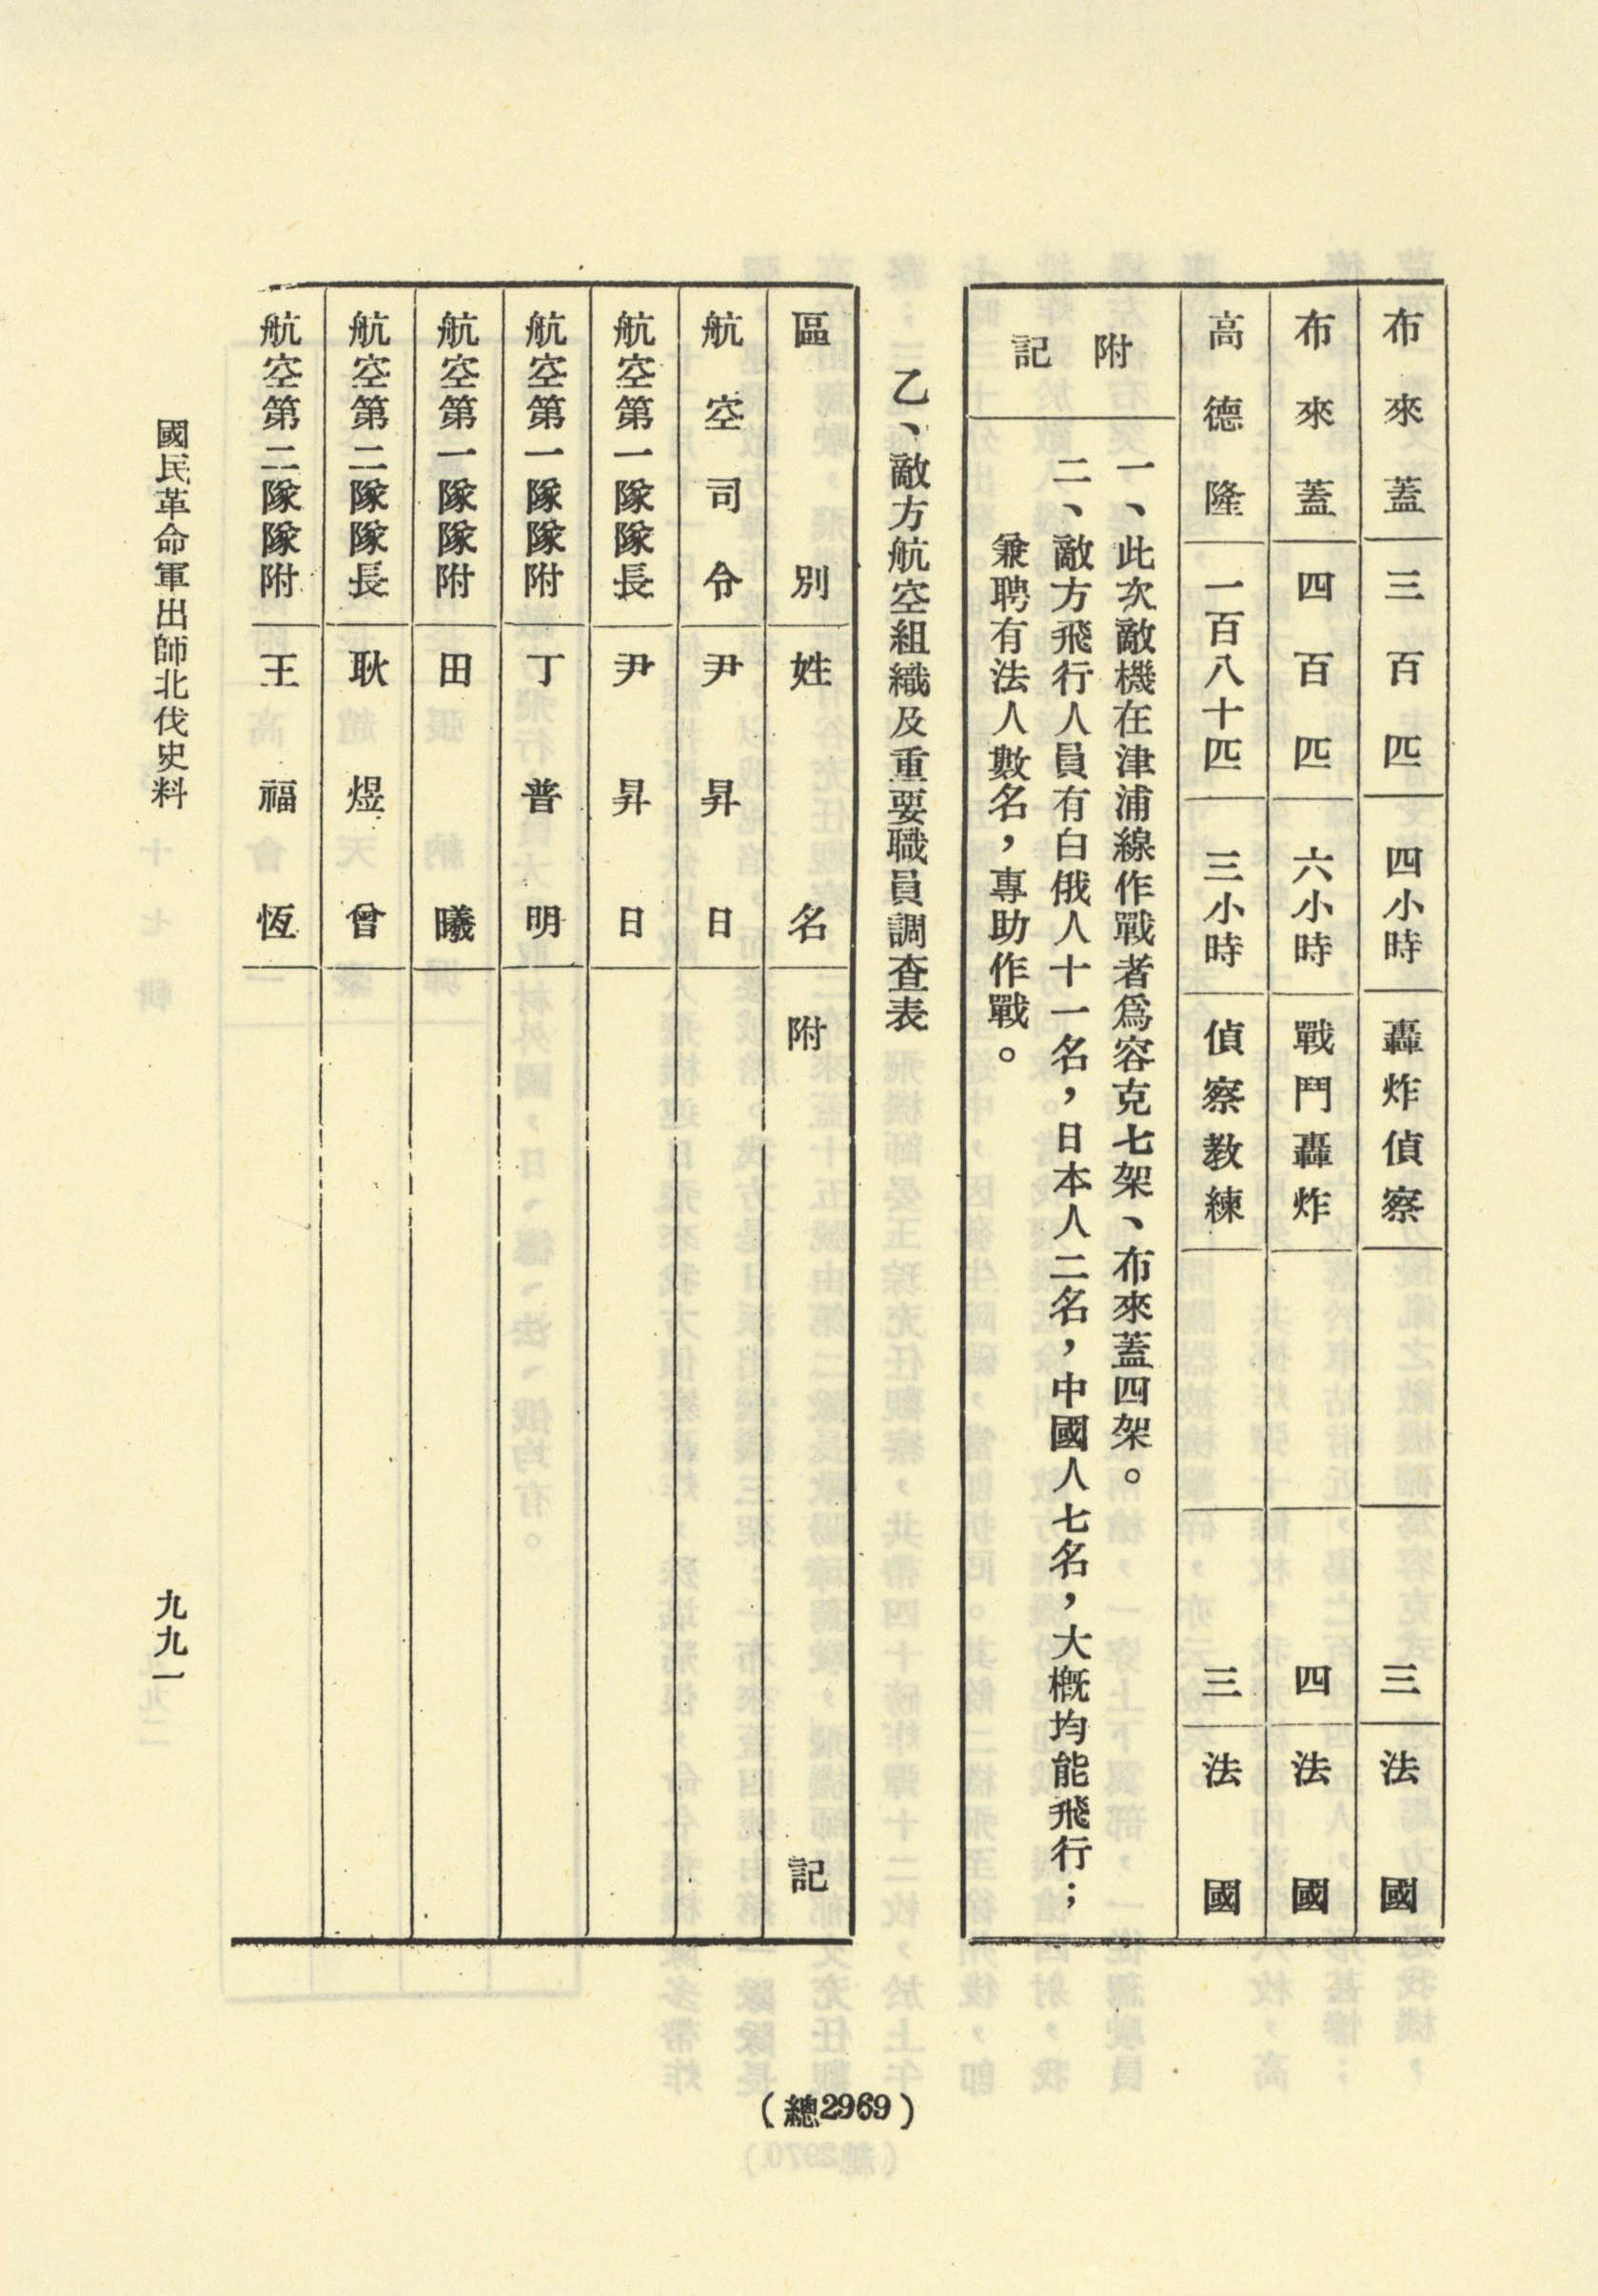 布來蓋 三百匹 四小時 轟炸偵察 三 法國
布來蓋 四百匹 六小時 戰鬥轟炸 四 法國
高德隆 一百八十匹 三小時 偵察教練 三 法國
附記
一、此次敵機在津浦線作戰者爲容克七架、布來蓋四架。
二、敵方飛行人員有白俄人十一名，日本人二名，中國人七名，大概均能飛行；
兼聘有法人數名，專助作戰。
乙、敵方航空組織及重要職員調查表
區別 姓名 附記
航空司令 尹昇日
航空第一隊隊長 尹昇日
航空第一隊隊附 丁普明
航空第一隊隊附 田曦
航空第二隊隊長 耿煜曾
航空第二隊隊附 王福恆
國民革命軍出師北伐史料
九九一
（總2969）